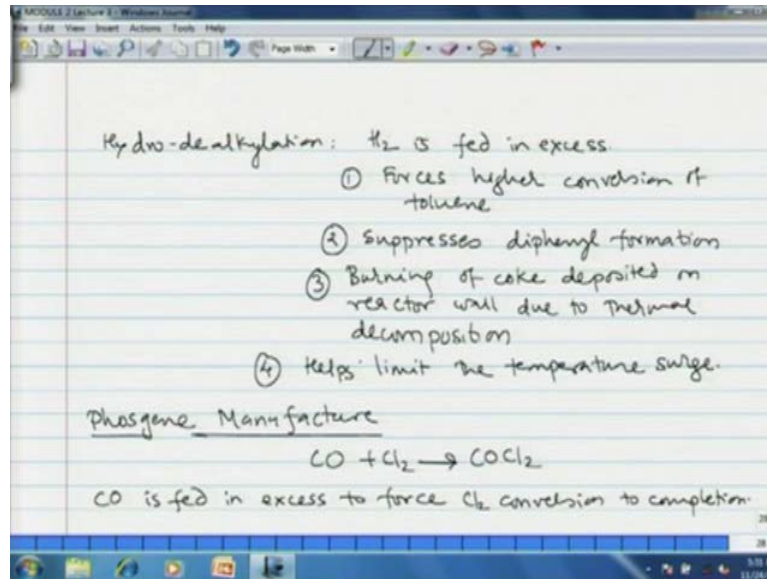 MODULE 2 Lecture 3 - Windows Journal
File Edit View Insert Actions Tools Help
Page Width
Hydro-dealkylation: H2 is fed in excess.
① Forces higher conversion of
toluene
② Suppresses diphenyl formation
③ Burning of coke deposited on
reactor wall due to thermal
decomposition
④ Helps limit the temperature surge.
Phosgene Manufacture
CO + Cl2 → COCl2
CO is fed in excess to force Cl2 conversion to completion.
28
28